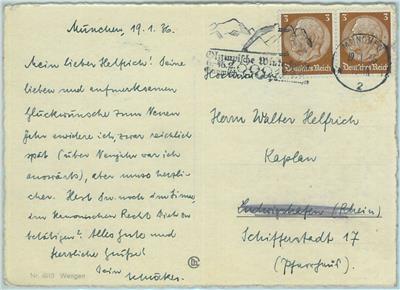 München, 19. 1. 36.
Mein lieber Helfrich! Deine
lieben und aufmerksamen
Glückwünsche zum Neuen
Jahr erwidere ich, zwar reichlich
spät (über Neujahr war ich
auswärts), aber umso herzli-
cher. Hast Du noch im Sinne,
im Kanonischen Recht Dich zu
betätigen? Alles Gute und
Herzliche Grüße!
Dein
Nr. 4610 Wengen
3 3
Deutsches Reich Deutsches Reich
Olympische
MÜNCHEN
2
Herrn Walter Helfrich
Kaplan
Ludwigshafen (Rhein)
Schifferstadt 17
(Pfarrhaus)